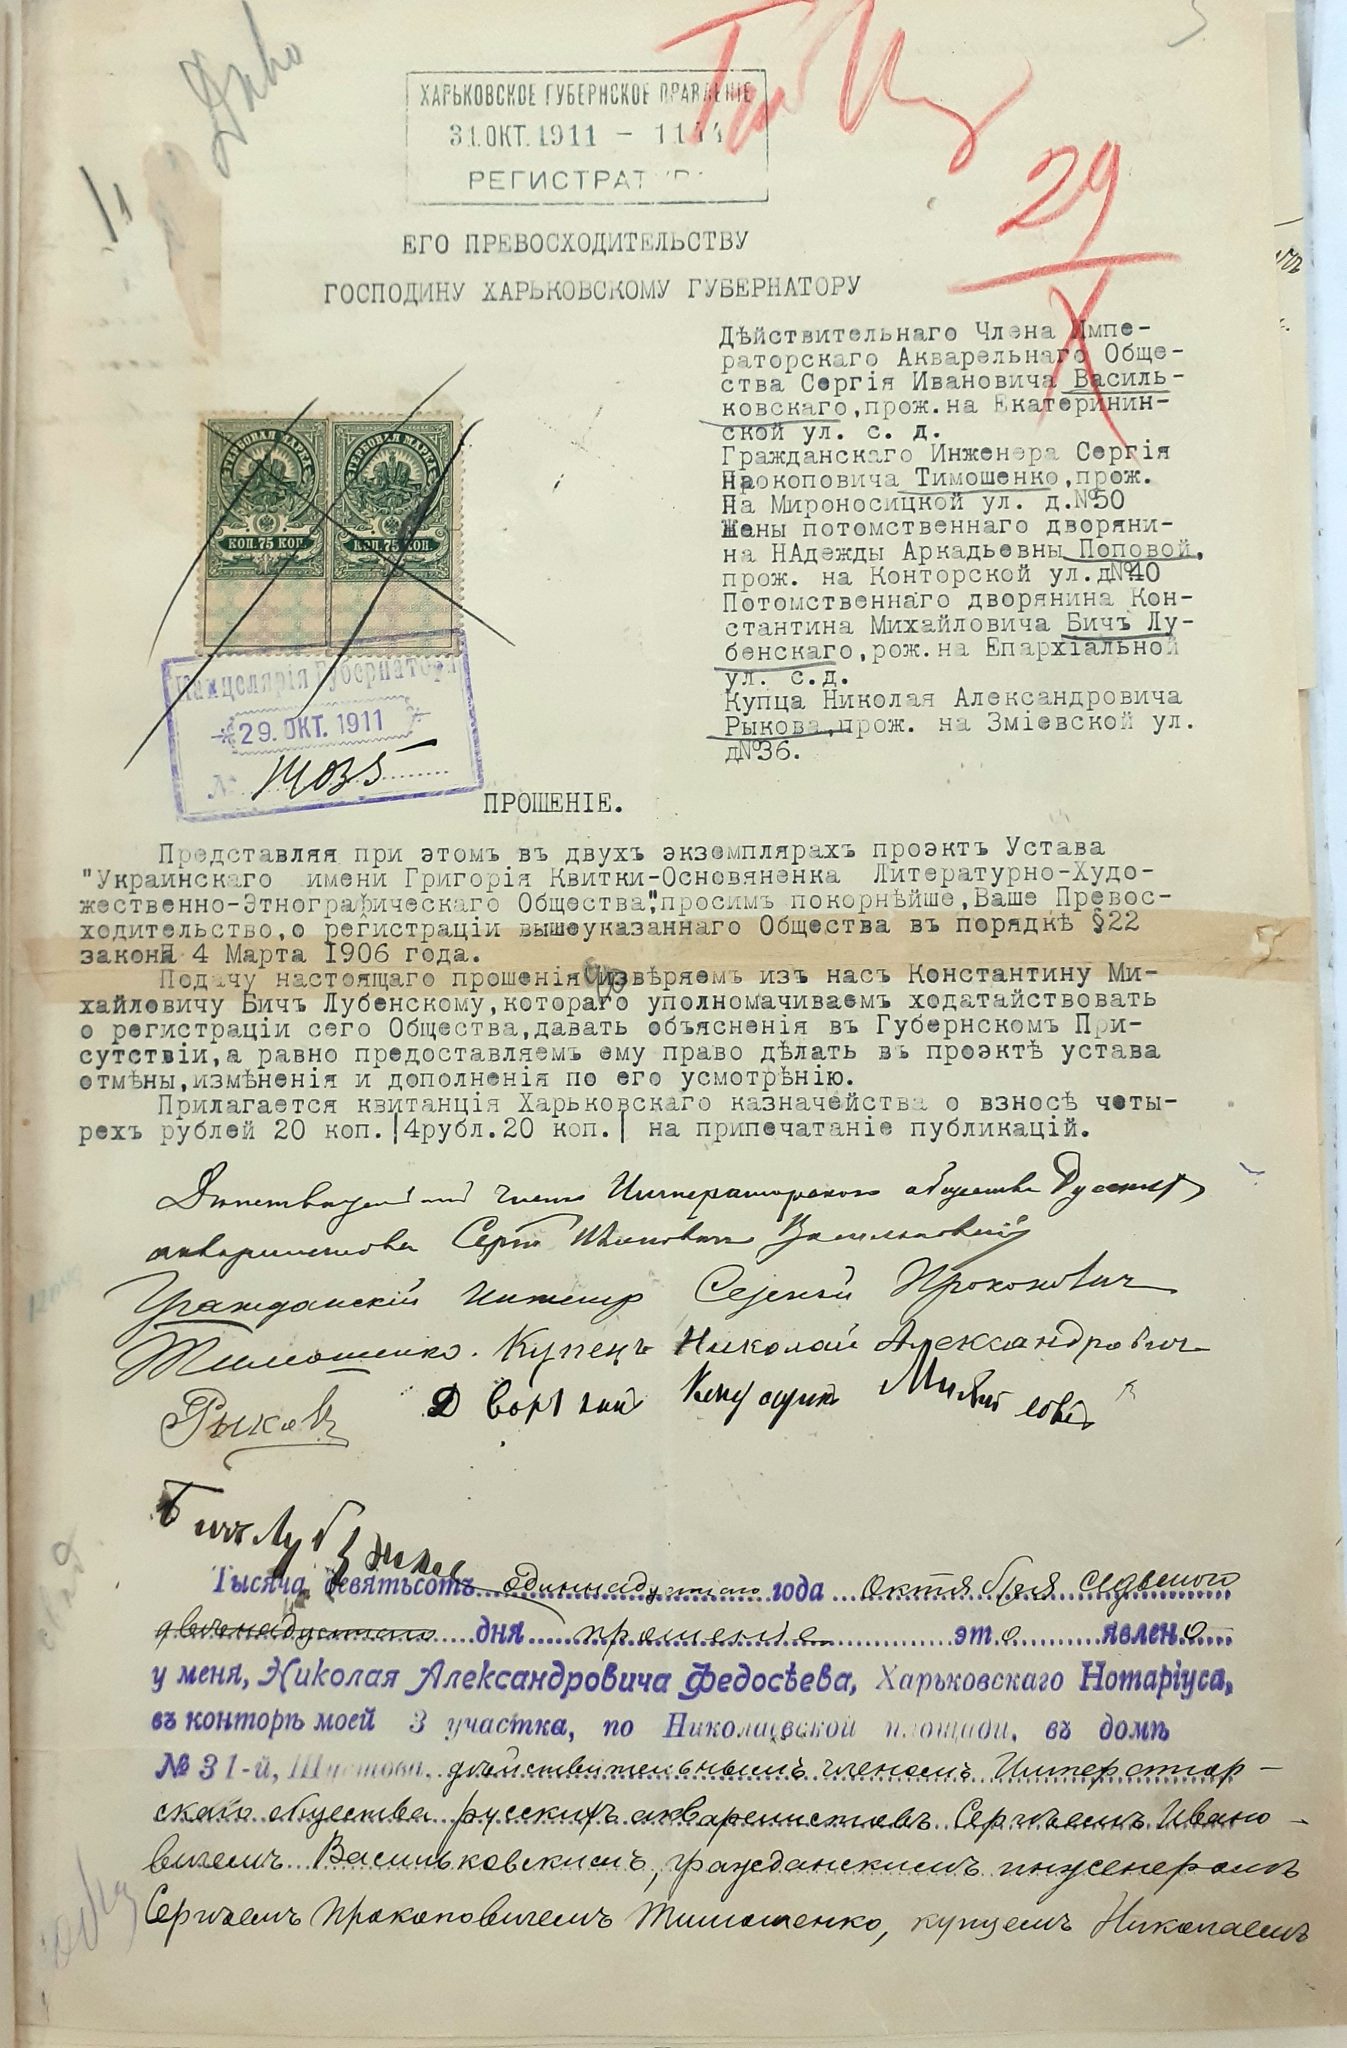 ХАРЬКОВСКОЕ ГУБЕРНСКОЕ ПРАВЛЕНІЕ
31.ОКТ.1911 -
РЕГИСТРАТ
29
X
ЕГО ПРЕВОСХОДИТЕЛЬСТВУ
ГОСПОДИНУ ХАРЬКОВСКОМУ ГУБЕРНАТОРУ
Дѣйствительнаго Члена Импе-
раторскаго Акварельнаго Обще-
ства Сергія Ивановича Василь-
ковскаго,прож.на Екатеринин-
ской ул. с. д.
Гражданскаго Инженера Сергія
Прокоповича Тимошенко,прож.
На Мироносицкой ул. д.№50
Жены потомственнаго дворяни-
на НАдежды Аркадьевны Поповой,
прож. на Конторской ул.д№40
Потомственнаго дворянина Кон-
стантина Михайловича Бичъ Лу-
бенскаго,рож.на Епархіальной
ул. с.д.
Купца Николая Александровича
Рыкова,прож. на Зміевской ул.
д№36.
ГЕРБОВАЯ МАРКА ГЕРБОВАЯ МАРКА
КОП.75 КОП. КОП.75 КОП.
Канцелярія Губернатора
29. ОКТ. 1911
№ 14035
ПРОШЕНІЕ.
Представляя при этомъ въ двухъ экземплярахъ проэктъ Устава
"Украинскаго имени Григорія Квитки-Основяненка Литературно-Худо-
жественно-Этнографическаго Общества",просимъ покорнѣйше,Ваше Превос-
ходительство,о регистраціи вышеуказаннаго Общества въ порядкѣ §22
закона 4 Марта 1906 года.
Подачу настоящаго прошенія извѣряемъ изъ насъ Константину Ми-
хайловичу Бичъ Лубенскому,котораго уполномачиваемъ ходатайствовать
о регистраціи сего Общества,давать объясненія въ Губернскомъ При-
сутствіи,а равно предоставляемъ ему право дѣлать въ проэктѣ устава
отмѣны,измѣненія и дополненія по его усмотрѣнію.
Прилагается квитанція Харьковскаго казначейства о взносѣ четы-
рехъ рублей 20 коп.|4рубл.20 коп.| на припечатаніе публикацій.
членъ Императорскаго общества Русскихъ
акварелистовъ Сергѣй Ивановичъ Васильковскій
Гражданскій Инженер Сергѣй Прокопович
Тимошенко. Купецъ Николай Александрович
Рыковъ Дворянинъ Константинъ Михайловичъ
Бичъ Лубенскій
Тысяча девятьсотъ одиннадцатаго года октября седьмого
двенадцатаго дня прошеніе это явлено
у меня, Николая Александровича Федосѣева, Харьковскаго Нотаріуса,
въ конторѣ моей 3 участка, по Николаевской площади, въ домѣ
№ 31-й, дѣйствительнымъ членомъ Император-
скаго общества русскихъ акварелистовъ Сергѣемъ Ивано-
вичемъ Васильковскимъ, гражданскимъ инженеромъ
Сергѣемъ Прокоповичемъ Тимошенко, купцемъ Николаемъ